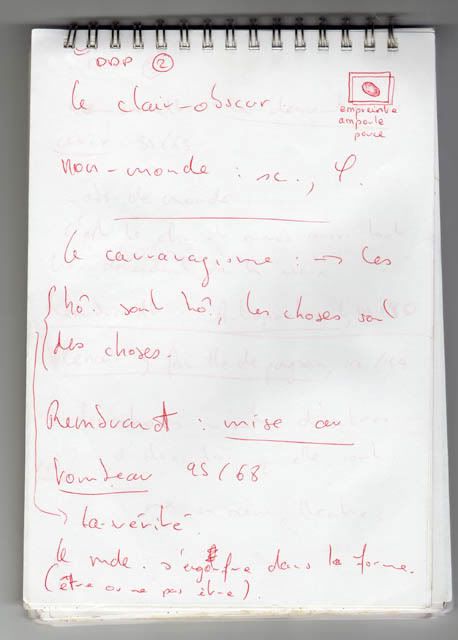 DDP ②
le clair-obscur
empreinte
ampoule
pouce
non-monde : sc., φ.
le carravagisme : → les
hô. sont hô, les choses sont
des choses.
Rembrandt : mise au
tombeau 95/68
la vérité
le mde. s'engouffre dans la forme.
(être ou ne pas être).